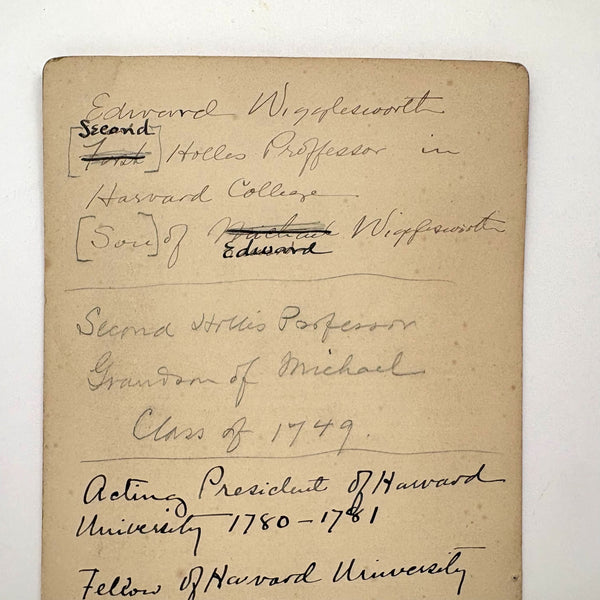 Edward Wigglesworth
Second
[First] Holles Proffessor in
Harvard College
[Son] of Michael Wigglesworth
Edward
Second Hollis Professor
Grandson of Michael
Class of 1749.
Acting President of Harvard
University 1780-1781
Fellow of Harvard University